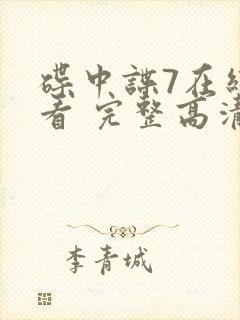 碟中諜7在
看 完整高清
李青城